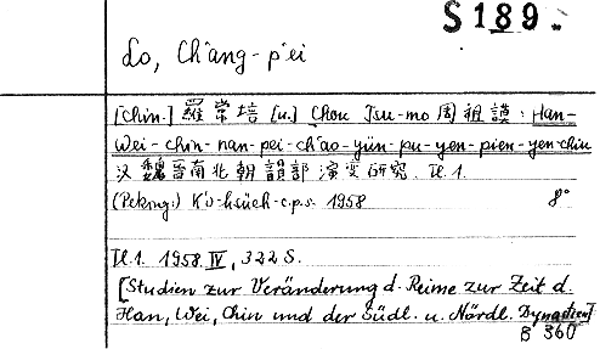 S 189.
Lo, Ch'ang-p'ei
[Chin.] 羅常培 [u.] Chou Tsu-mo 周祖謨: Han-
Wei-chin-nan-pei-ch'ao-yün-pu-yen-pien-yen-chiu
汉魏晋南北朝韻部演变研究. Tl. 1.
(Peking:) K'o-hsüeh-c.p.s. 1958 8°
Tl. 1. 1958. IV, 322 S.
[Studien zur Veränderung d. Reime zur Zeit d.
Han, Wei, Chin und der Südl. u. Nördl. Dynastien]
B 360